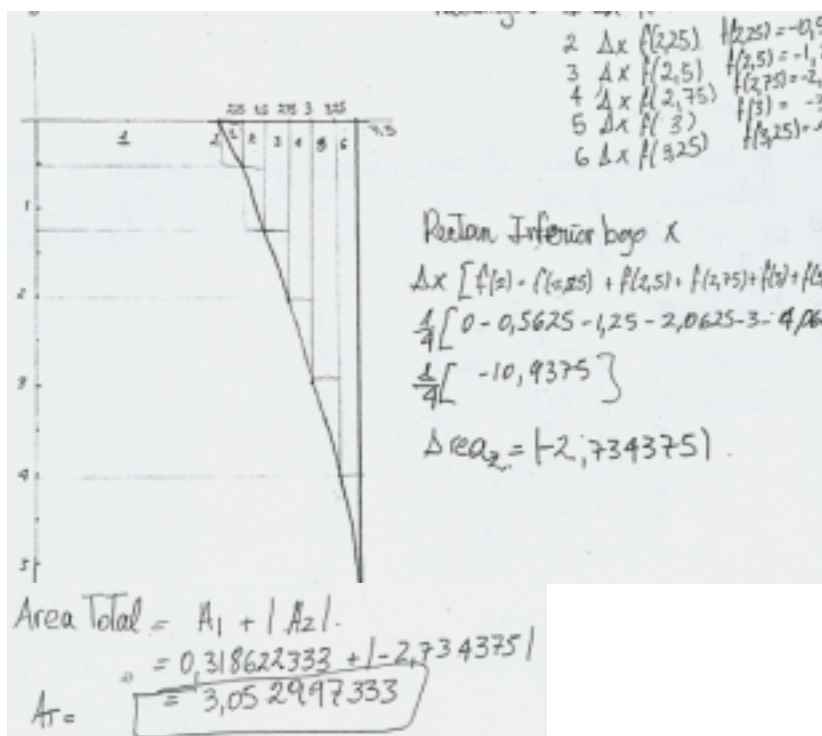 2 Δx f(2,25) f(2,25) = -0,5
3 Δx f(2,5) f(2,5) = -1,
4 Δx f(2,75) f(2,75) = -2,
5 Δx f(3) f(3) = -3
6 Δx f(3,25) f(3,25) = -
2,25 2,5 2,75 3 3,25 3,5
1
1 2 3 4 5 6
1
2
3
4
5
Inferior bajo x
Δx [f(2) + f(2,25) + f(2,5) + f(2,75) + f(3) + f(3
1/4 [0 - 0,5625 - 1,25 - 2,0625 - 3 - 4,06
1/4 [ -10,9375 ]
Area₂ = |-2,734375|.
Area Total = A₁ + |A₂|.
= 0,318622333 + |-2,734375|
A_T = = 3,052997333